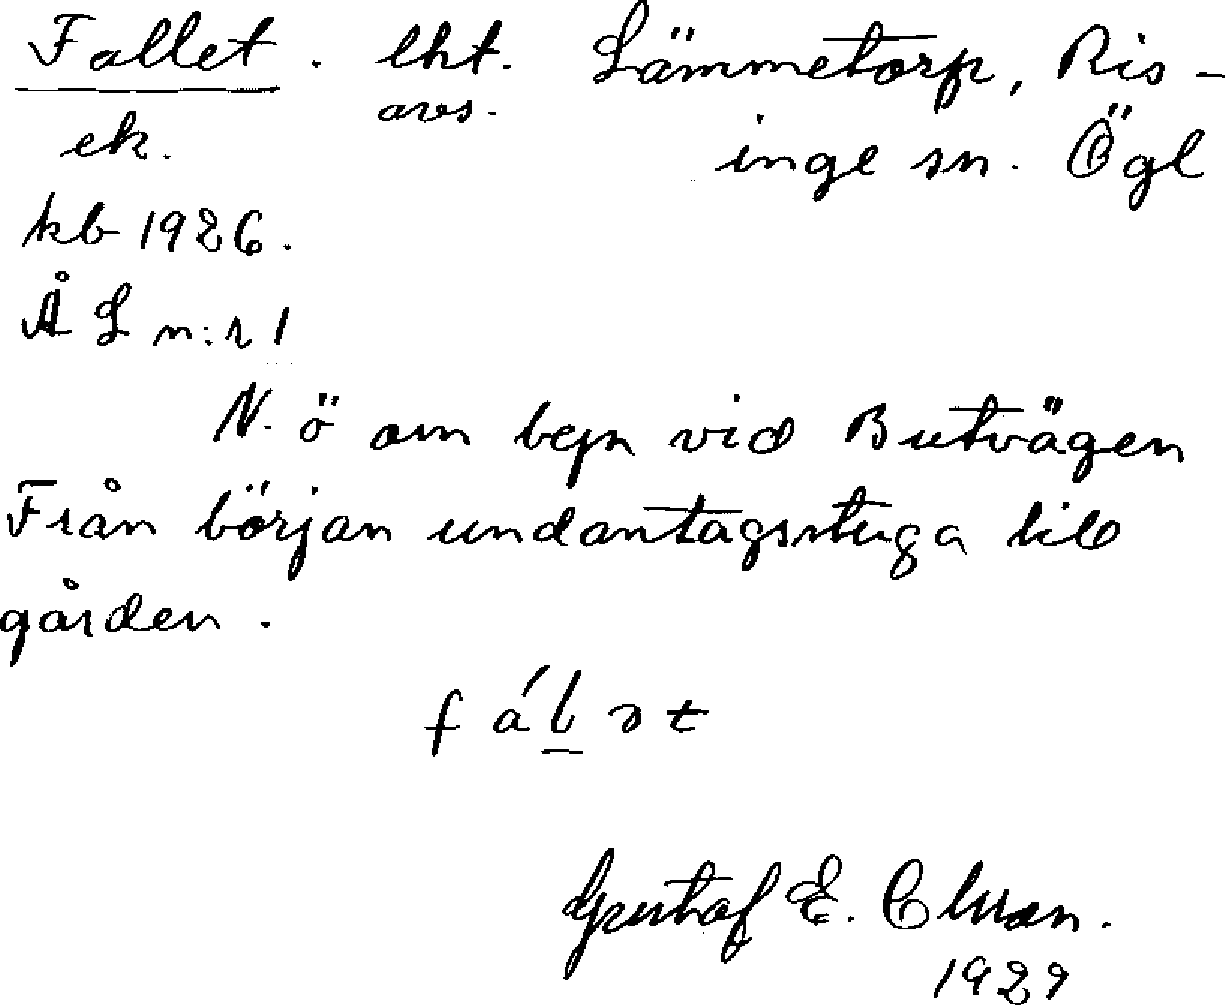 Fallet. lht. Lämmetorp, Ris-
avs.
ek. inge sn. Ögl
kb 1926.
ÅL n:r 1
N. ö om byn vid Butvägen
Från början undantagsstuga till
gården.
f á l ə t
Gustaf E.
1929